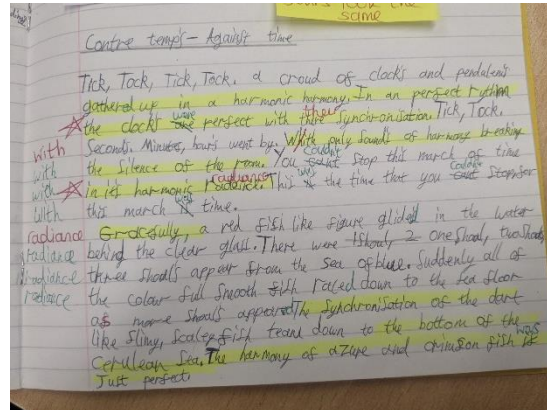 same
Contre temps - Against time
Tick, Tock, Tick, Tock. A croud of clocks and pendulems
gathered up in a harmonic harmony. In an perfect rythm
the clocks were perfect with their Synchronisation. Tick, Tock.
Seconds. Minutes, hours went by. With only sounds of harmony breaking
the silence of the room. You couldn't stop this march of time
in its harmonic radiance. This was the time that you couldn't stop for
this march of time.
with
with
with
with
Gracefully, a red fish like figure glided in the water
behind the clear glass. There were one shoal, two shoals,
three shoals appear from the sea of blue. Suddenly all of
the colour full smooth fish raced down to the sea floor
as more shoals appeared. The synchronisation of the dart
like slimy, scaley fish teand down to the bottom of the
Cerulean Sea. The harmony of azure and crimson fish was
Just perfect.
radiance
radiance
radiance
radiance